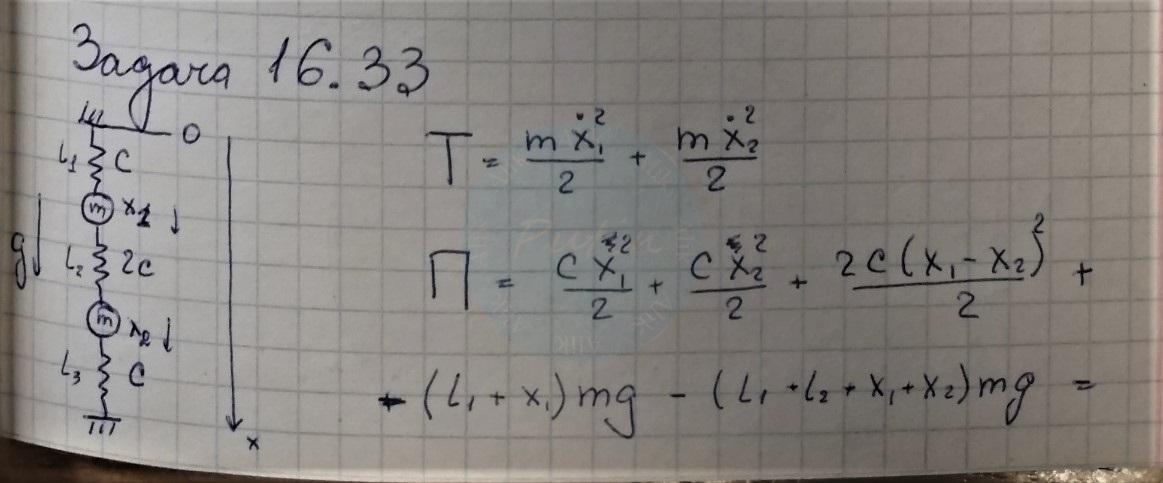 Задача 16.33
O
L₁ C
m x₁
g
L₂ 2c
m x₂
L₃ C
x
T = mẋ₁²/2 + mẋ₂²/2
П = Cx₁²/2 + Cx₂²/2 + 2C(x₁-x₂)²/2 +
- (L₁ + x₁)mg - (L₁ + L₂ + x₁ + x₂)mg =